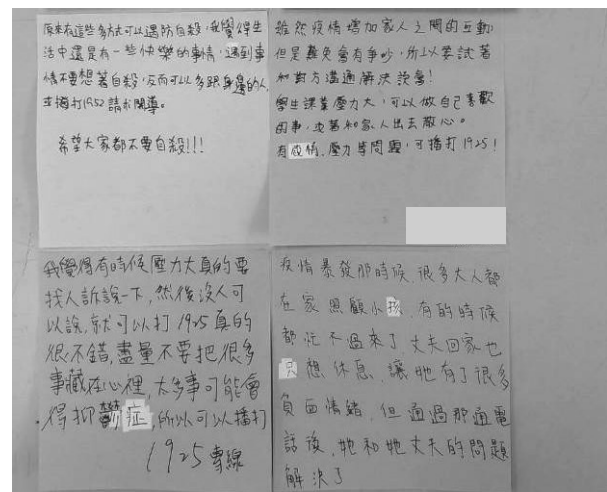 原來有這些多方式可以遇防自殺,我覺得生
活中還是有一些快樂的事情,遇到事
情不要想著自殺,反而可以多跟身邊的人
或播打1952請求開導。
希望大家都不要自殺!!!
雖然疫情增加家人之間的互動
但是難免會有爭吵,所以要試著
和對方溝通解決誤會!
學生課業壓力大,可以做自己喜歡
的事,也若和家人出去散心。
有感情、壓力等問題,可播打1925!
我覺得有時候壓力大真的要
找人訴說一下,然後沒人可
以說,就可以打1925真的
很不錯,盡量不要把很多
事藏在心裡,太多事可能會
得抑鬱症,所以可以播打
1925專線
疫情暴發那時候,很多大人都
在家照顧小孩,有的時候
都忙不過來了丈夫回家也
只想休息,讓她有了很多
負面情緒,但通過那通電
話後,她和她丈夫的問題
解決了